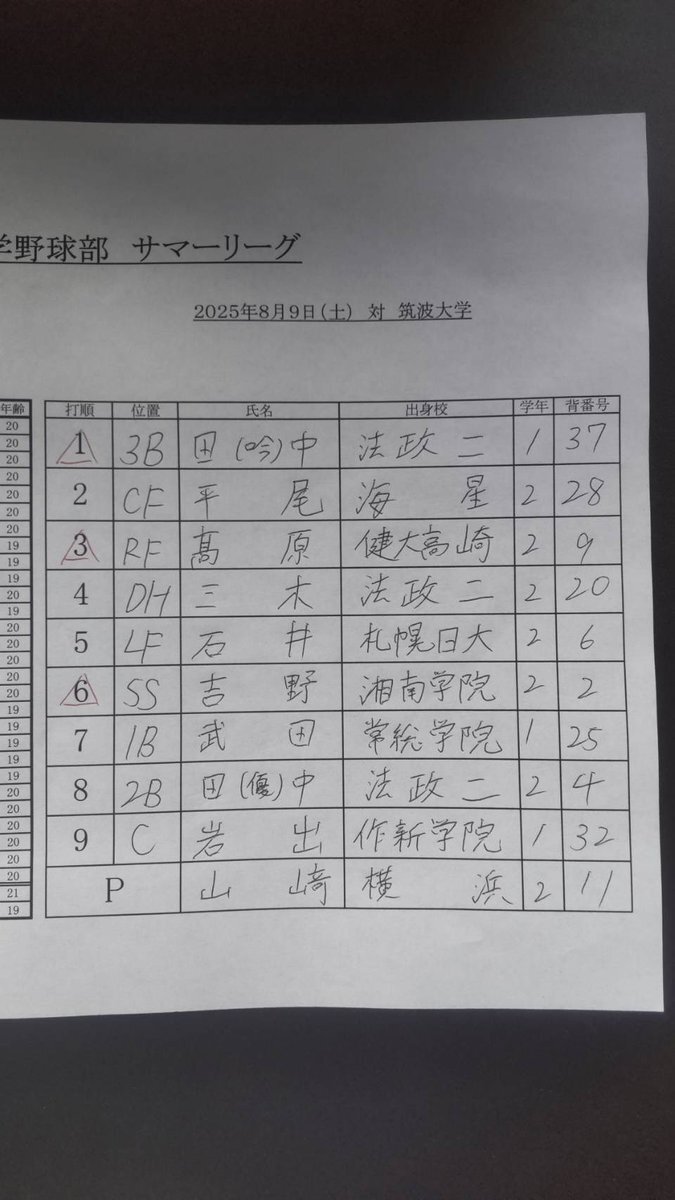 学野球部 サマーリーグ
2025年8月9日(土) 対 筑波大学
年齢
20
20
20
20
20
20
20
19
20
19
20
19
20
20
20
20
20
19
19
19
19
19
20
20
20
20
20
20
21
19
打順 位置 氏名 出身校 学年 背番号
1 3B 田(吟)中 法政二 1 37
2 CF 平尾 海星 2 28
3 RF 髙原 健大高崎 2 9
4 DH 三木 法政二 2 20
5 LF 石井 札幌日大 2 6
6 SS 吉野 湘南学院 2 2
7 1B 武田 常総学院 1 25
8 2B 田(優)中 法政二 2 4
9 C 岩出 作新学院 1 32
P 山﨑 横浜 2 11